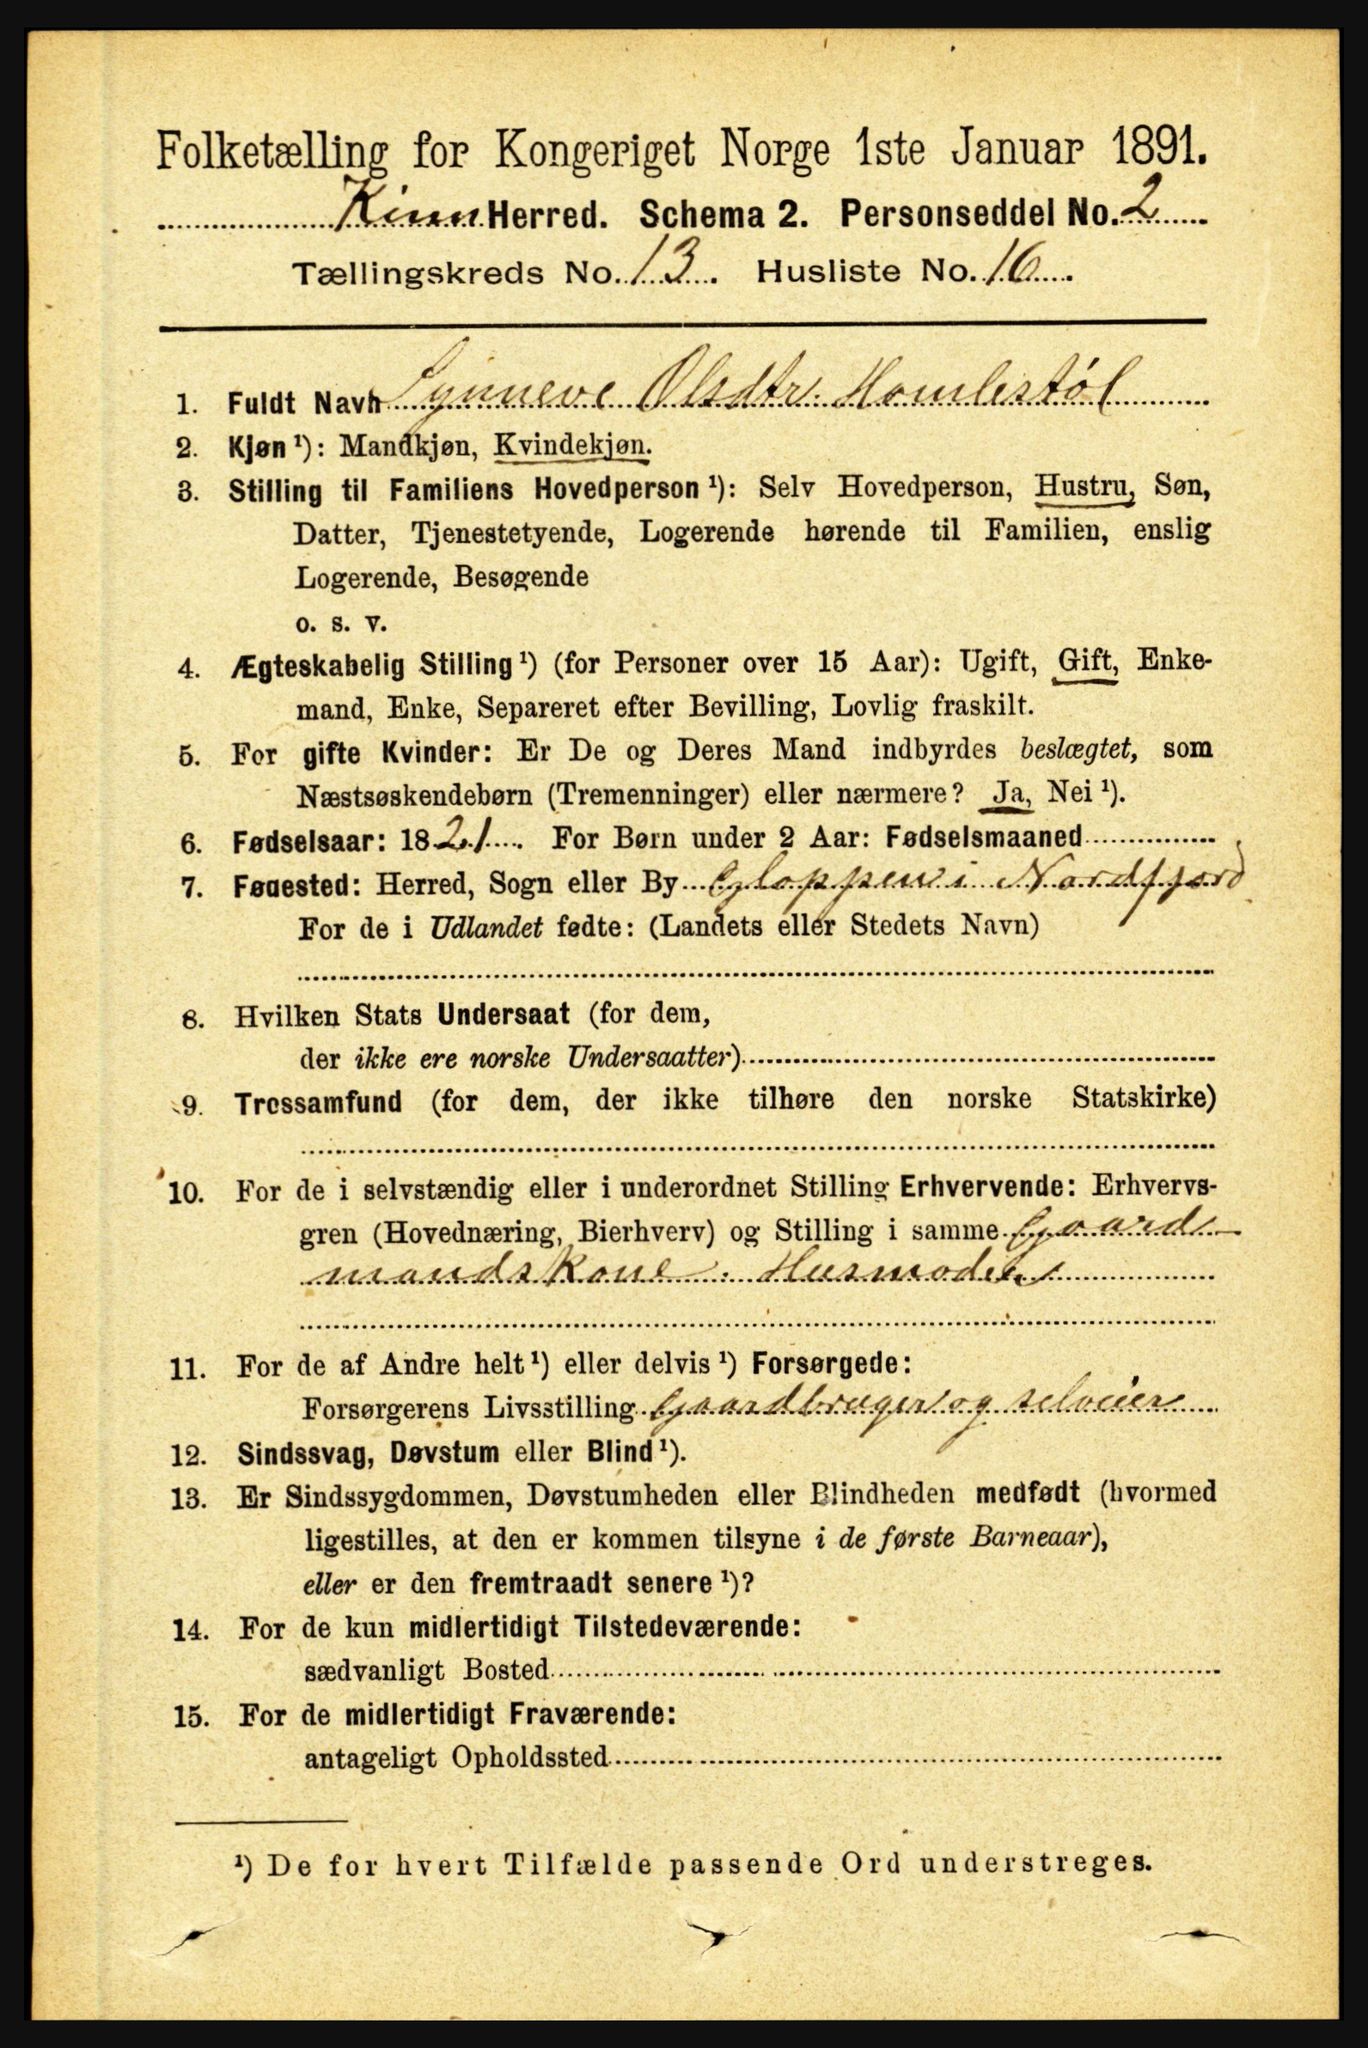 Folketælling for Kongeriget Norge 1ste Januar 1891.
Kinn Herred. Schema 2. Personseddel No. 2
Tællingskreds No. 13. Husliste No. 16.
1. Fuldt Navn Synneve Olsdtr. Homlestøl
2. Kjøn ¹): Mandkjøn, Kvindekjøn.
3. Stilling til Familiens Hovedperson ¹): Selv Hovedperson, Hustru, Søn,
Datter, Tjenestetyende, Logerende hørende til Familien, enslig
Logerende, Besøgende
o. s. v.
4. Ægteskabelig Stilling ¹) (for Personer over 15 Aar): Ugift, Gift, Enke-
mand, Enke, Separeret efter Bevilling, Lovlig fraskilt.
5. For gifte Kvinder: Er De og Deres Mand indbyrdes beslægtet, som
Næstsøskendebørn (Tremenninger) eller nærmere? Ja, Nei ¹).
6. Fødselsaar: 1821. For Børn under 2 Aar: Fødselsmaaned
7. Fødested: Herred, Sogn eller By Gloppen i Nordfjord
For de i Udlandet fødte: (Landets eller Stedets Navn)
8. Hvilken Stats Undersaat (for dem,
der ikke ere norske Undersaatter)
9. Trossamfund (for dem, der ikke tilhøre den norske Statskirke)
10. For de i selvstændig eller i underordnet Stilling Erhvervende: Erhvervs-
gren (Hovednæring, Bierhverv) og Stilling i samme Gaard-
mandskone. Husmoder
11. For de af Andre helt ¹) eller delvis ¹) Forsørgede:
Forsørgerens Livsstilling Gaardbruger og selveier
12. Sindssvag, Døvstum eller Blind ¹).
13. Er Sindssygdommen, Døvstumheden eller Blindheden medfødt (hvormed
ligestilles, at den er kommen tilsyne i de første Barneaar),
eller er den fremtraadt senere ¹)?
14. For de kun midlertidigt Tilstedeværende:
sædvanligt Bosted
15. For de midlertidigt Fraværende:
antageligt Opholdssted
¹) De for hvert Tilfælde passende Ord understreges.